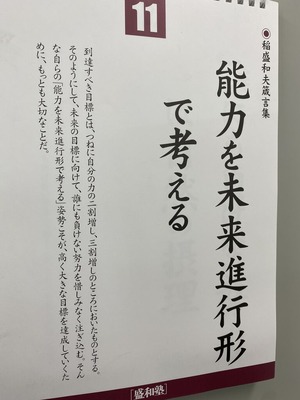 11
◉稲盛和夫箴言集
能力を未来進行形
で考える
到達すべき目標とは、つねに自分の力の二割増し、三割増しのところにおいたものとする。
そのようにして、未来の目標に向けて、誰にも負けない努力を惜しみなく注ぎ込む。そん
な自らの「能力を未来進行形で考える」姿勢こそが、高く大きな目標を達成していくた
めに、もっとも大切なことだ。
[盛和塾]